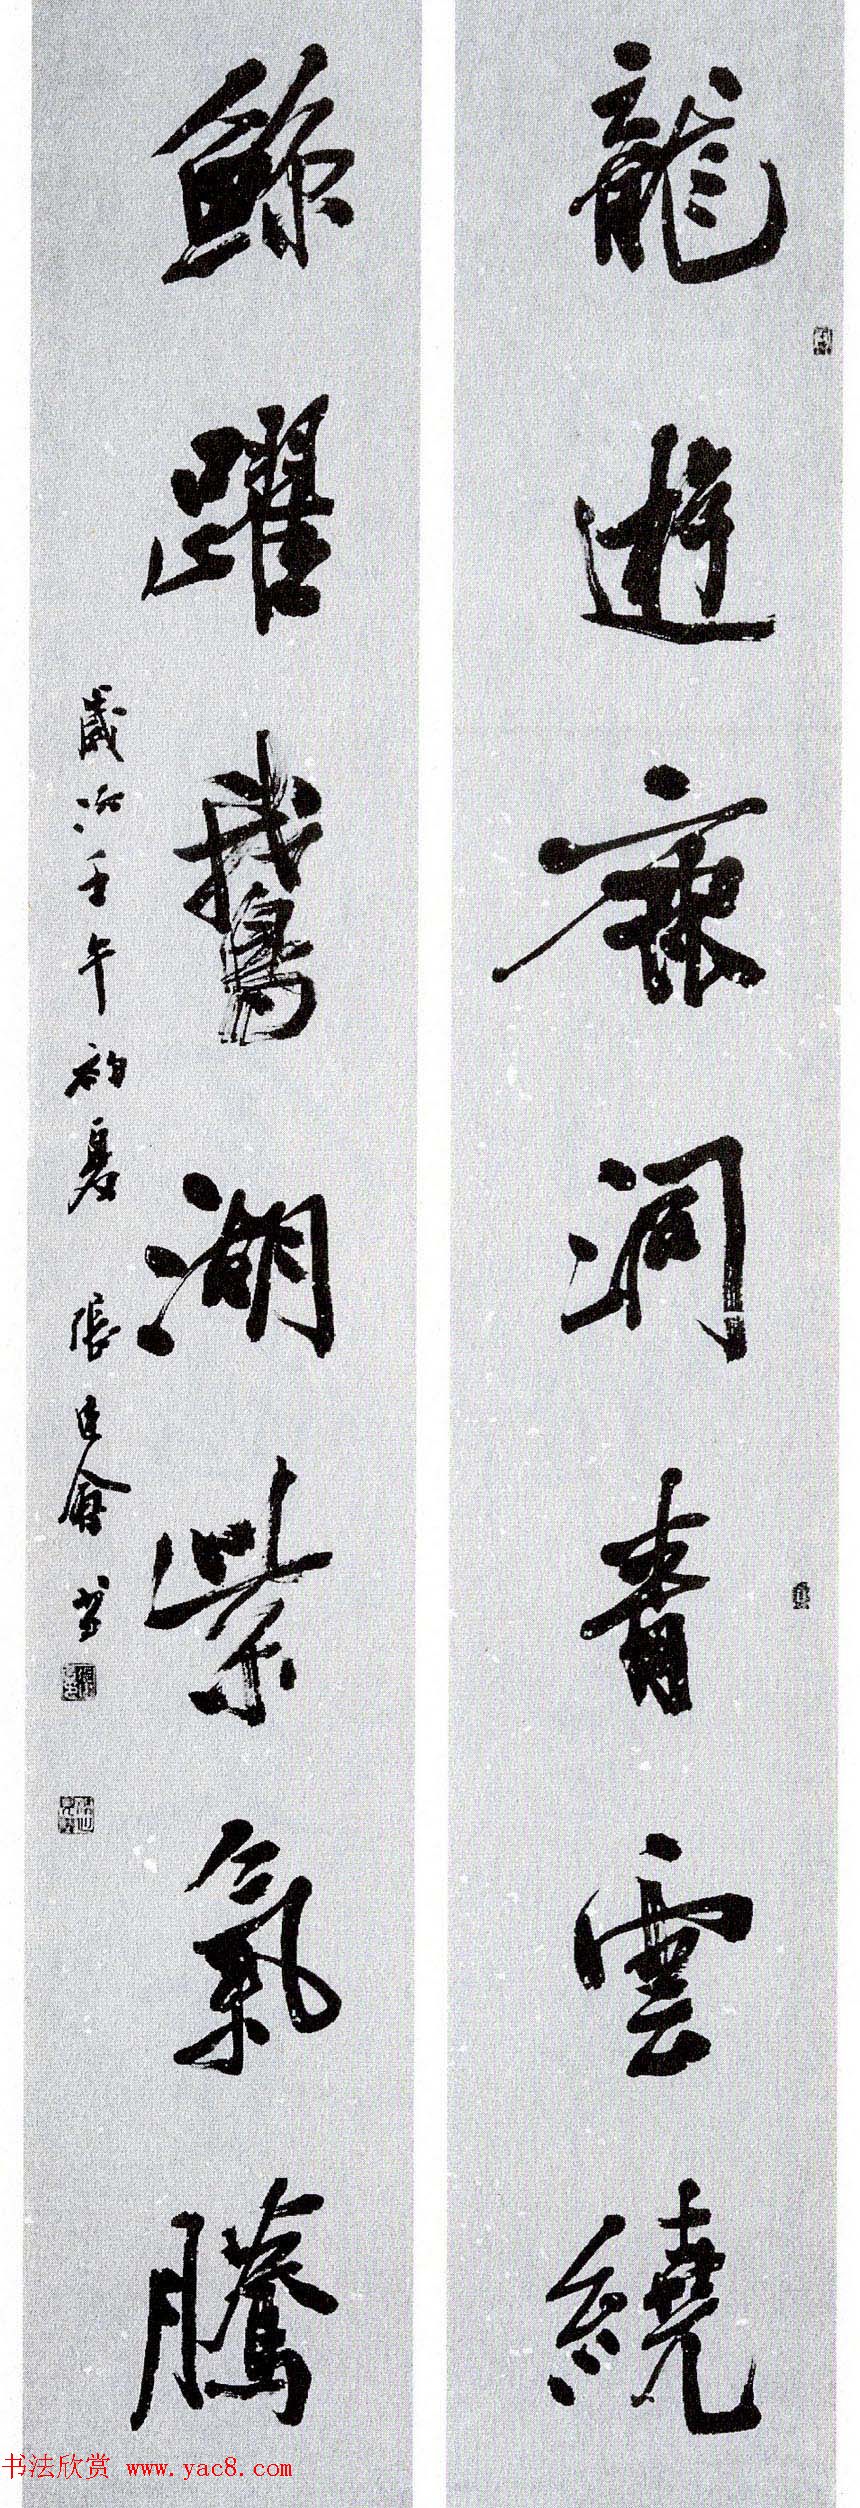 龍遊鹿洞青雲繞
鯨躍鵝湖紫氣騰
歲次壬午初夏 張建會書
书法欣赏 www.yac8.com